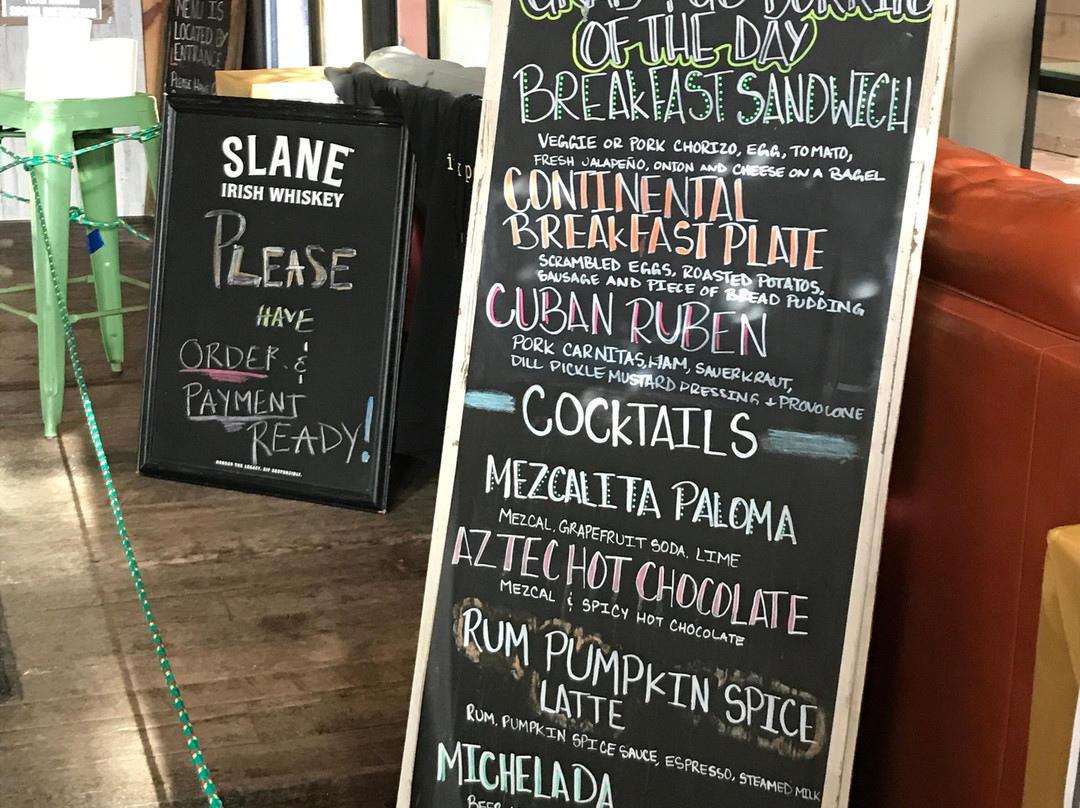 MENU IS
LOCATED BY
ENTRANCE
PLEASE HAVE
SLANE
IRISH WHISKEY
PLEASE
HAVE
ORDER &
PAYMENT
READY!
HONOR THE LEGACY. SIP RESPONSIBLY.
GRAB & GO BURRITO
OF THE DAY
BREAKFAST SANDWICH
VEGGIE OR PORK CHORIZO, EGG, TOMATO,
FRESH JALAPEÑO, ONION AND CHEESE ON A BAGEL
CONTINENTAL
BREAKFAST PLATE
SCRAMBLED EGGS, ROASTED POTATOS,
SAUSAGE AND PIECE OF BREAD PUDDING
CUBAN RUBEN
PORK CARNITAS, HAM, SAUERKRAUT,
DILL PICKLE MUSTARD DRESSING + PROVOLONE
COCKTAILS
MEZCALITA PALOMA
MEZCAL, GRAPEFRUIT SODA, LIME
AZTEC HOT CHOCOLATE
MEZCAL & SPICY HOT CHOCOLATE
RUM PUMPKIN SPICE
LATTE
RUM, PUMPKIN SPICE SAUCE, ESPRESSO, STEAMED MILK
MICHELADA
BEER